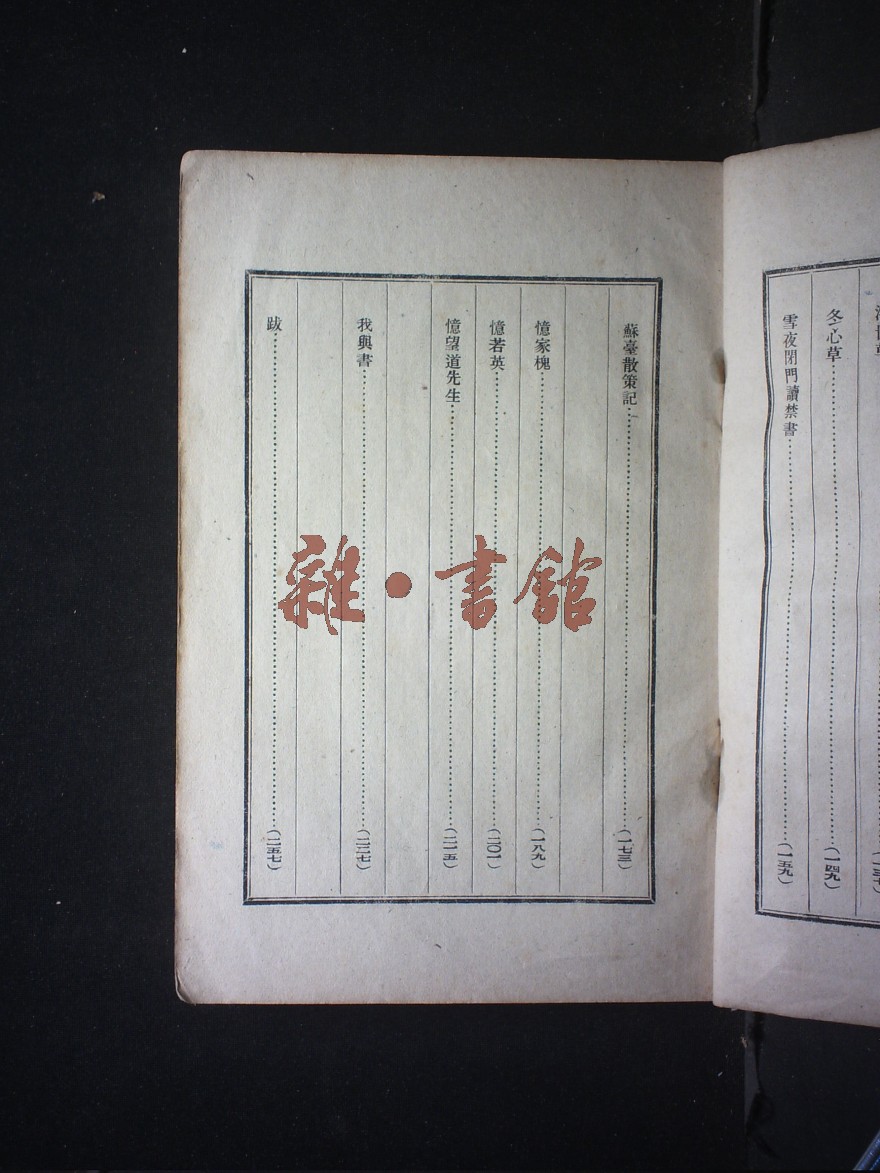 冬心草……(一四九)
雪夜閉門讀禁書……(一五九)
蘇臺散策記……(一七三)
憶家槐……(一八九)
憶若英……(二〇一)
憶望道先生……(二一五)
我與書……(二二七)
跋……(二五七)
雜·書館